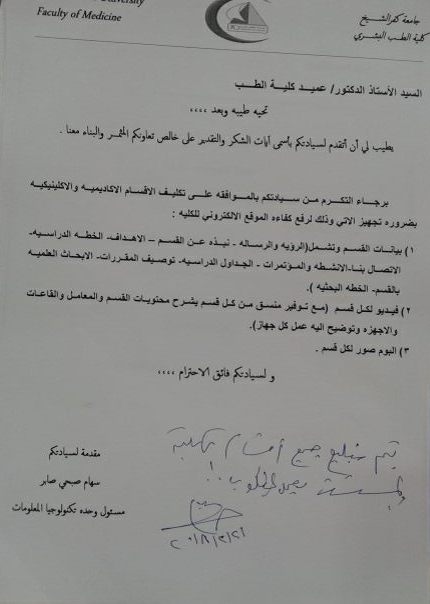 University
Faculty of Medicine
جامعة كفرالشيخ
كلية الطب البشري
السيد الأستاذ الدكتور/ عميد كلية الطب
تحيه طيبه وبعد ,,,,
يطيب لي أن أتقدم لسيادتكم بأسمى آيات الشكر والتقدير على خالص تعاونكم المثمر والبناء معنا .
برجاء التكرم من سيادتكم بالموافقه على تكليف الاقسام الاكاديميه والاكلينيكيه
بضروره تجهيز الاتي وذلك لرفع كفاءه الموقع الالكتروني للكليه :
١) بيانات القسم وتشمل(الرؤيه والرساله - نبذه عن القسم – الاهداف- الخطه الدراسيه-
الاتصال بنا-الانشطه والمؤتمرات - الجداول الدراسيه- توصيف المقررات- الابحاث العلميه
بالقسم- الخطه البحثيه ).
٢) فيديو لكل قسم (مع توفير منسق من كل قسم يشرح محتويات القسم والمعامل والقاعات
والاجهزه وتوضيح اليه عمل كل جهاز).
٣) البوم صور لكل قسم .
و لسيادتكم فائق الاحترام ,,,,
مقدمة لسيادتكم
سهام صبحي صابر
مسئول وحده تكنولوجيا المعلومات
يتم تبليغ جميع أقسام الكلية